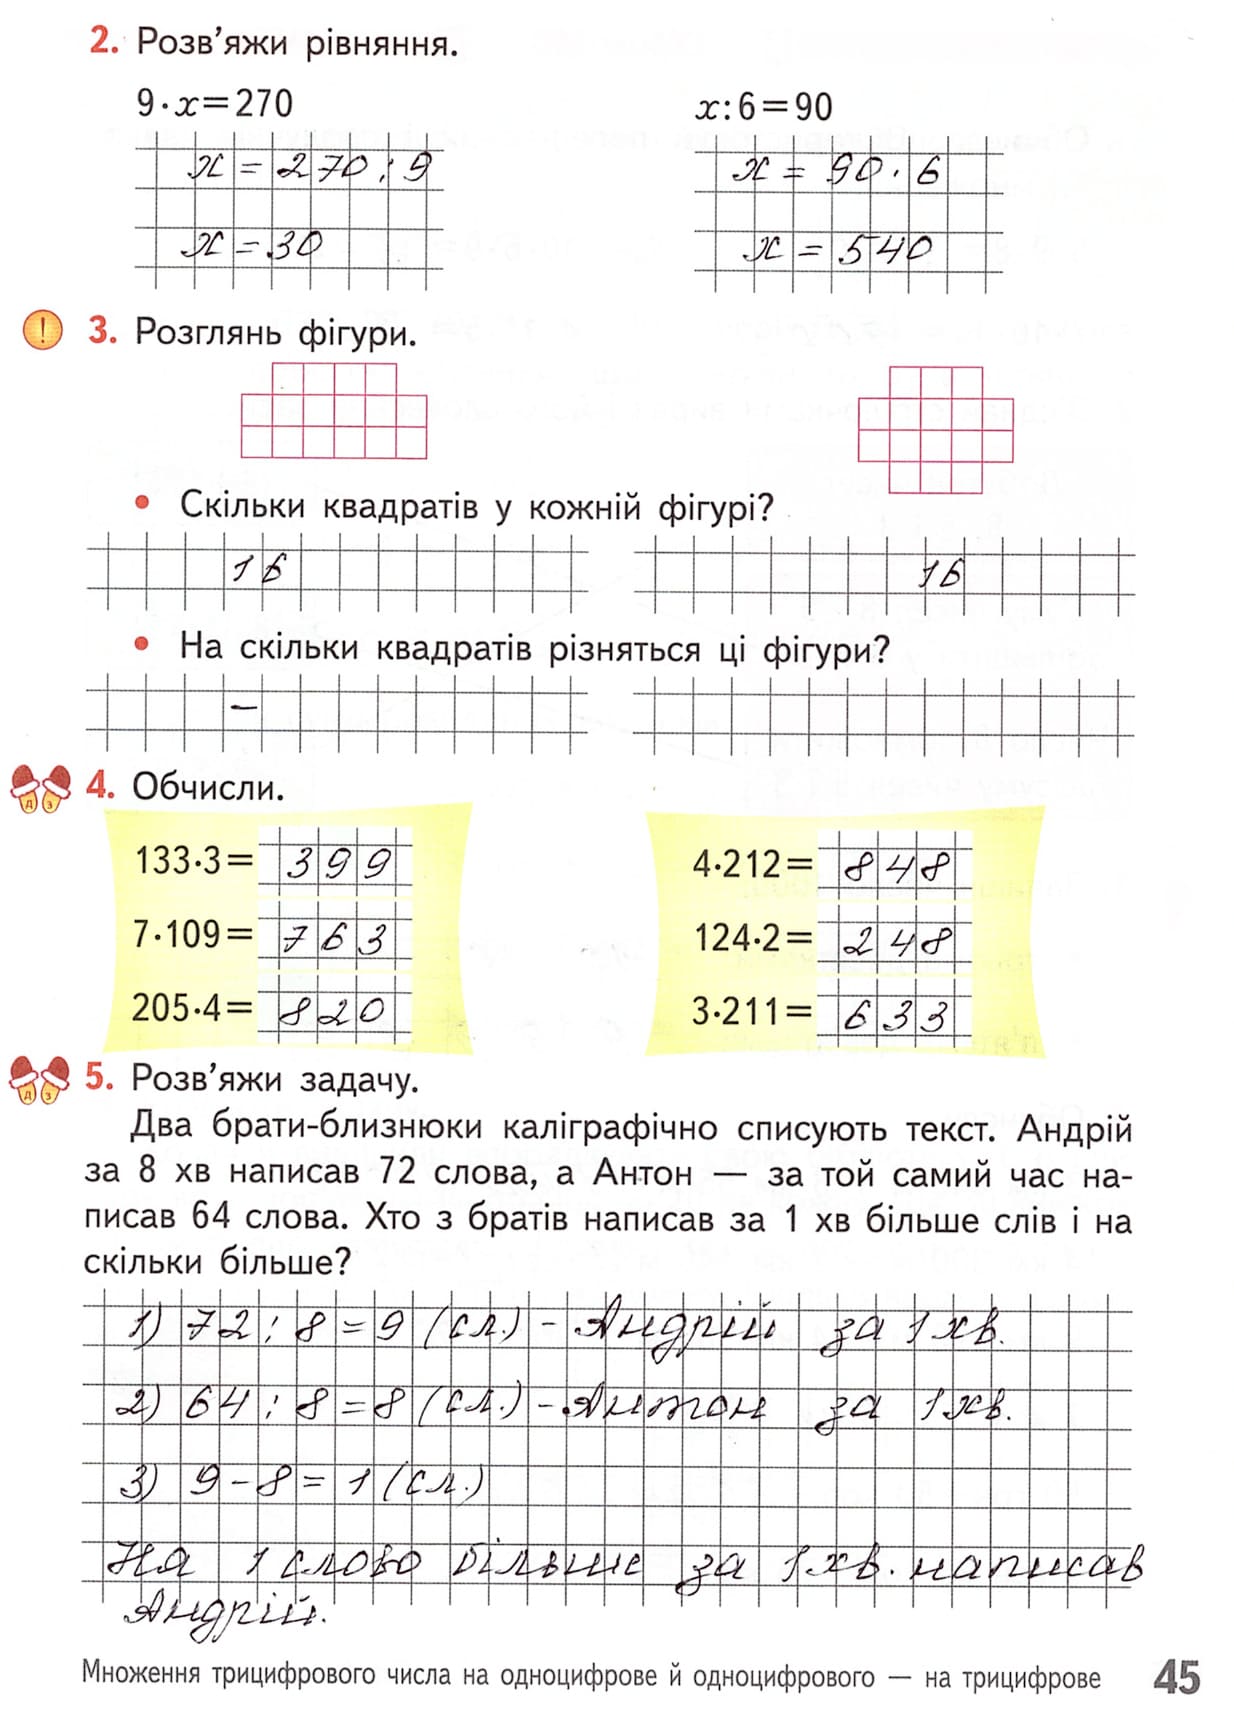 2. Розв’яжи рівняння.
9·x=270
x:6=90
x = 270 : 9
x = 90 · 6
x = 30
x = 540
! 3. Розглянь фігури.
• Скільки квадратів у кожній фігурі?
16
16
• На скільки квадратів різняться ці фігури?
–
д з 4. Обчисли.
133·3= 399
4·212= 848
7·109= 763
124·2= 248
205·4= 820
3·211= 633
д з 5. Розв’яжи задачу.
Два брати-близнюки каліграфічно списують текст. Андрій
за 8 хв написав 72 слова, а Антон — за той самий час на-
писав 64 слова. Хто з братів написав за 1 хв більше слів і на
скільки більше?
1) 72 : 8 = 9 (сл.) - Андрій за 1 хв.
2) 64 : 8 = 8 (сл.) - Антон за 1 хв.
3) 9 - 8 = 1 (сл.)
На 1 слово більше за 1 хв. написав
Андрій.
Множення трицифрового числа на одноцифрове й одноцифрового — на трицифрове 45